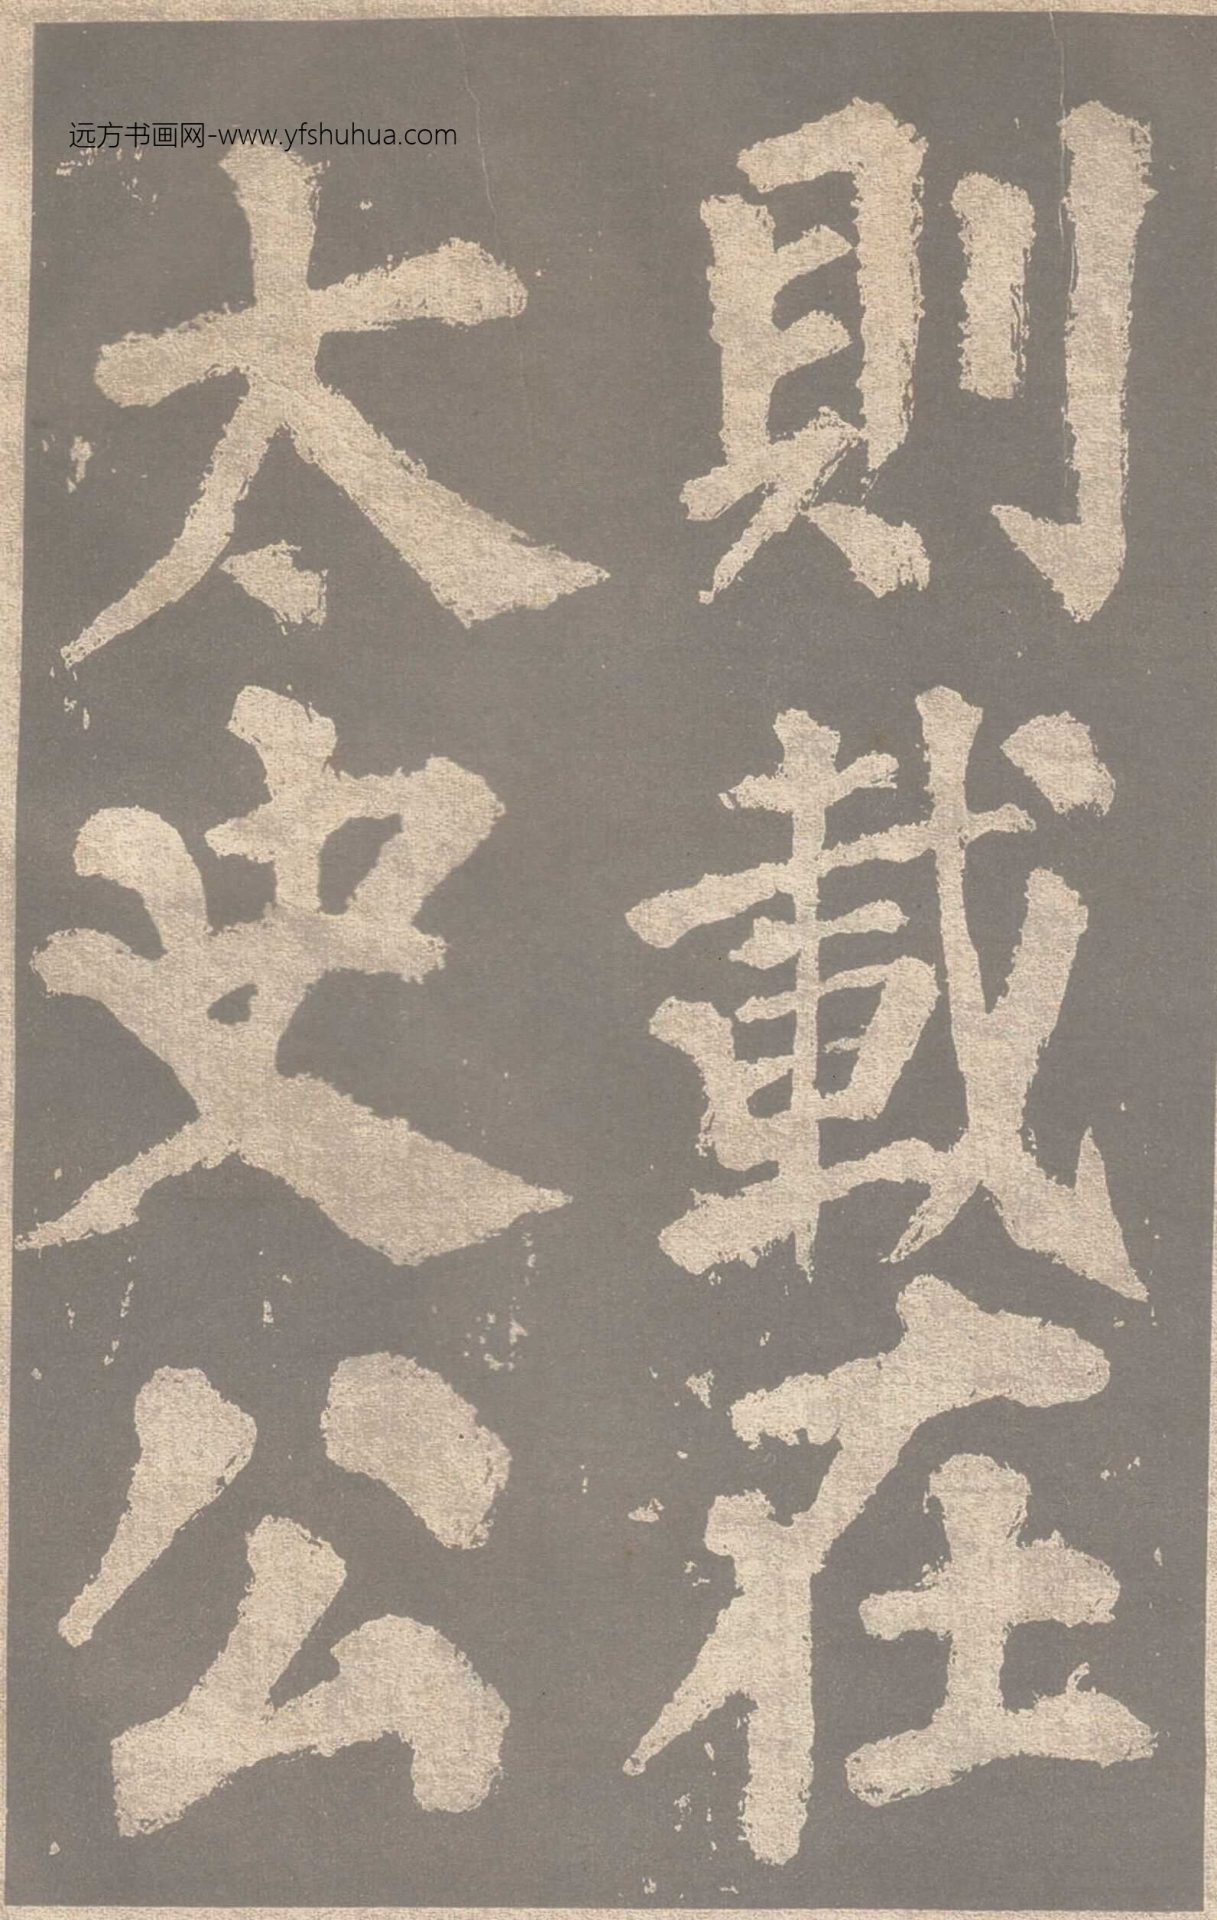 則載在
太史公
远方书画网-www.yfshuhua.com